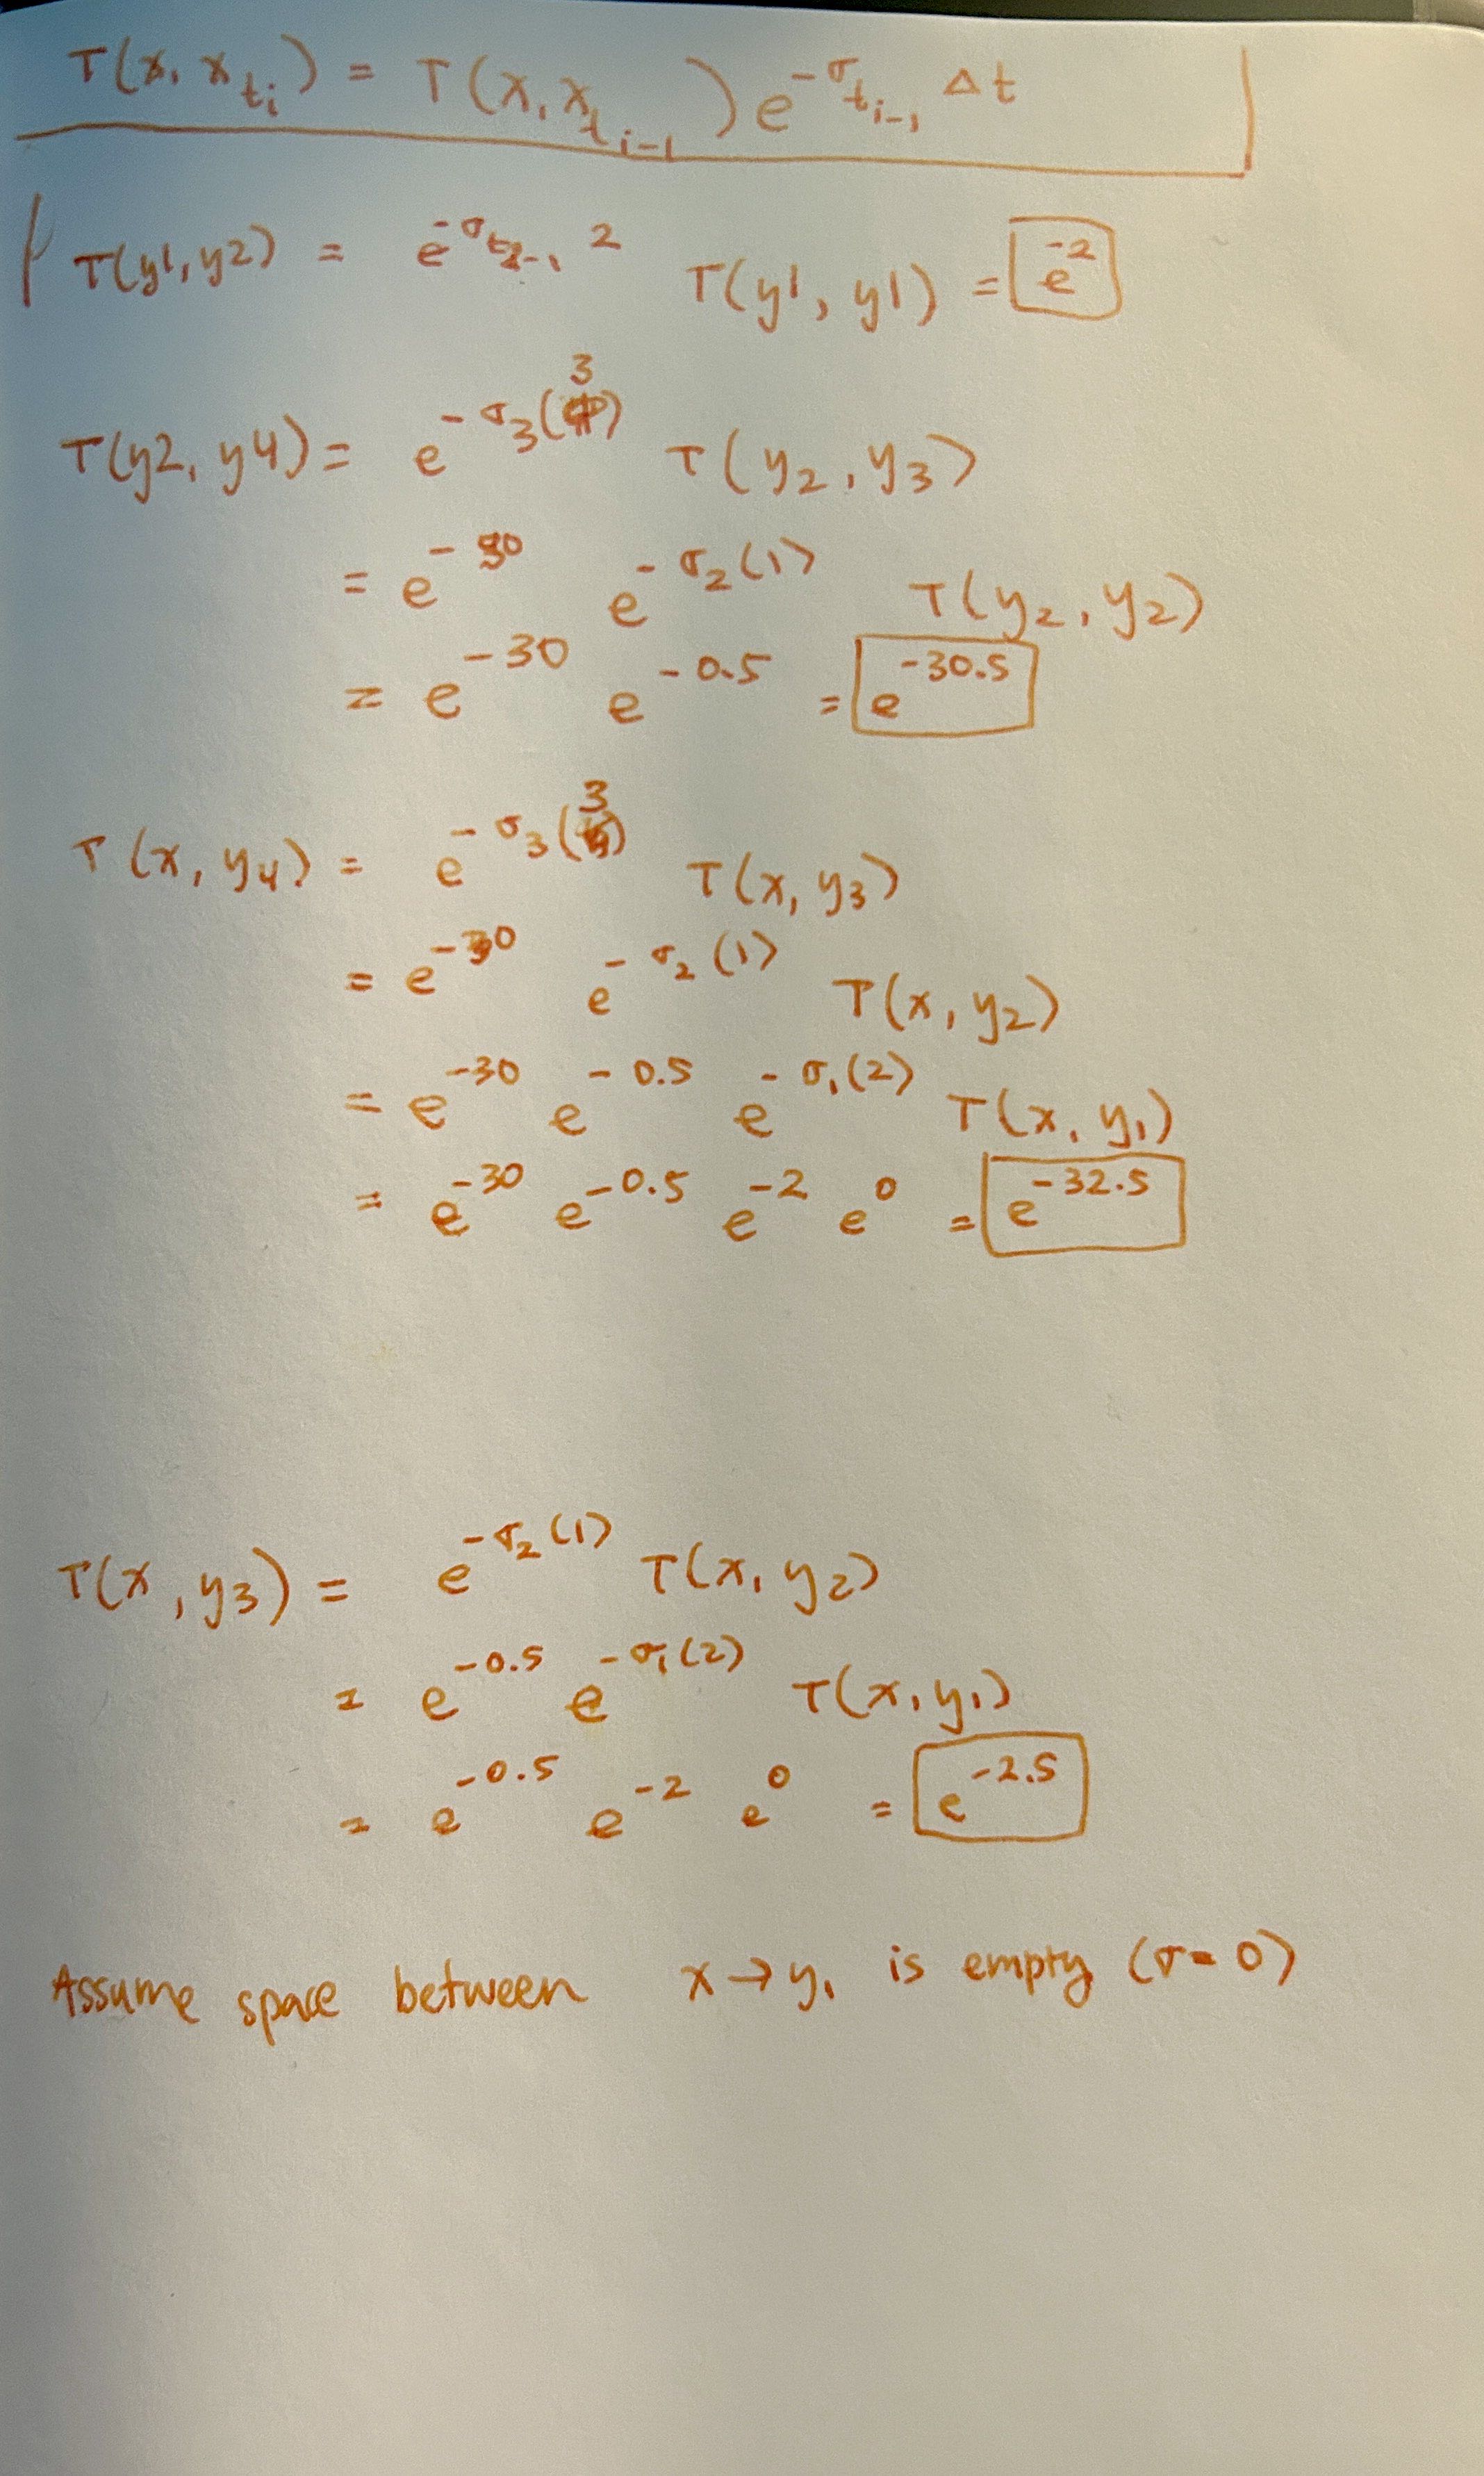 T(x, x_{t_i}) = T(x, x_{t_{i-1}}) e^{-σ_{t_{i-1}} Δt}
T(y1, y2) = e^{-σ_{t_{2-1}} 2} T(y1, y1) = e^{-2}
T(y2, y4) = e^{-σ_3(3)} T(y_2, y_3)
= e^{-30} e^{-σ_2(1)} T(y_2, y_2)
= e^{-30} e^{-0.5} = e^{-30.5}
T(x, y_4) = e^{-σ_3(3)} T(x, y_3)
= e^{-30} e^{-σ_2(1)} T(x, y_2)
= e^{-30} e^{-0.5} e^{-σ_1(2)} T(x, y_1)
= e^{-30} e^{-0.5} e^{-2} e^{0} = e^{-32.5}
T(x, y_3) = e^{-σ_2(1)} T(x, y_2)
= e^{-0.5} e^{-σ_1(2)} T(x, y_1)
= e^{-0.5} e^{-2} e^{0} = e^{-2.5}
Assume space between x → y_1 is empty (σ = 0)